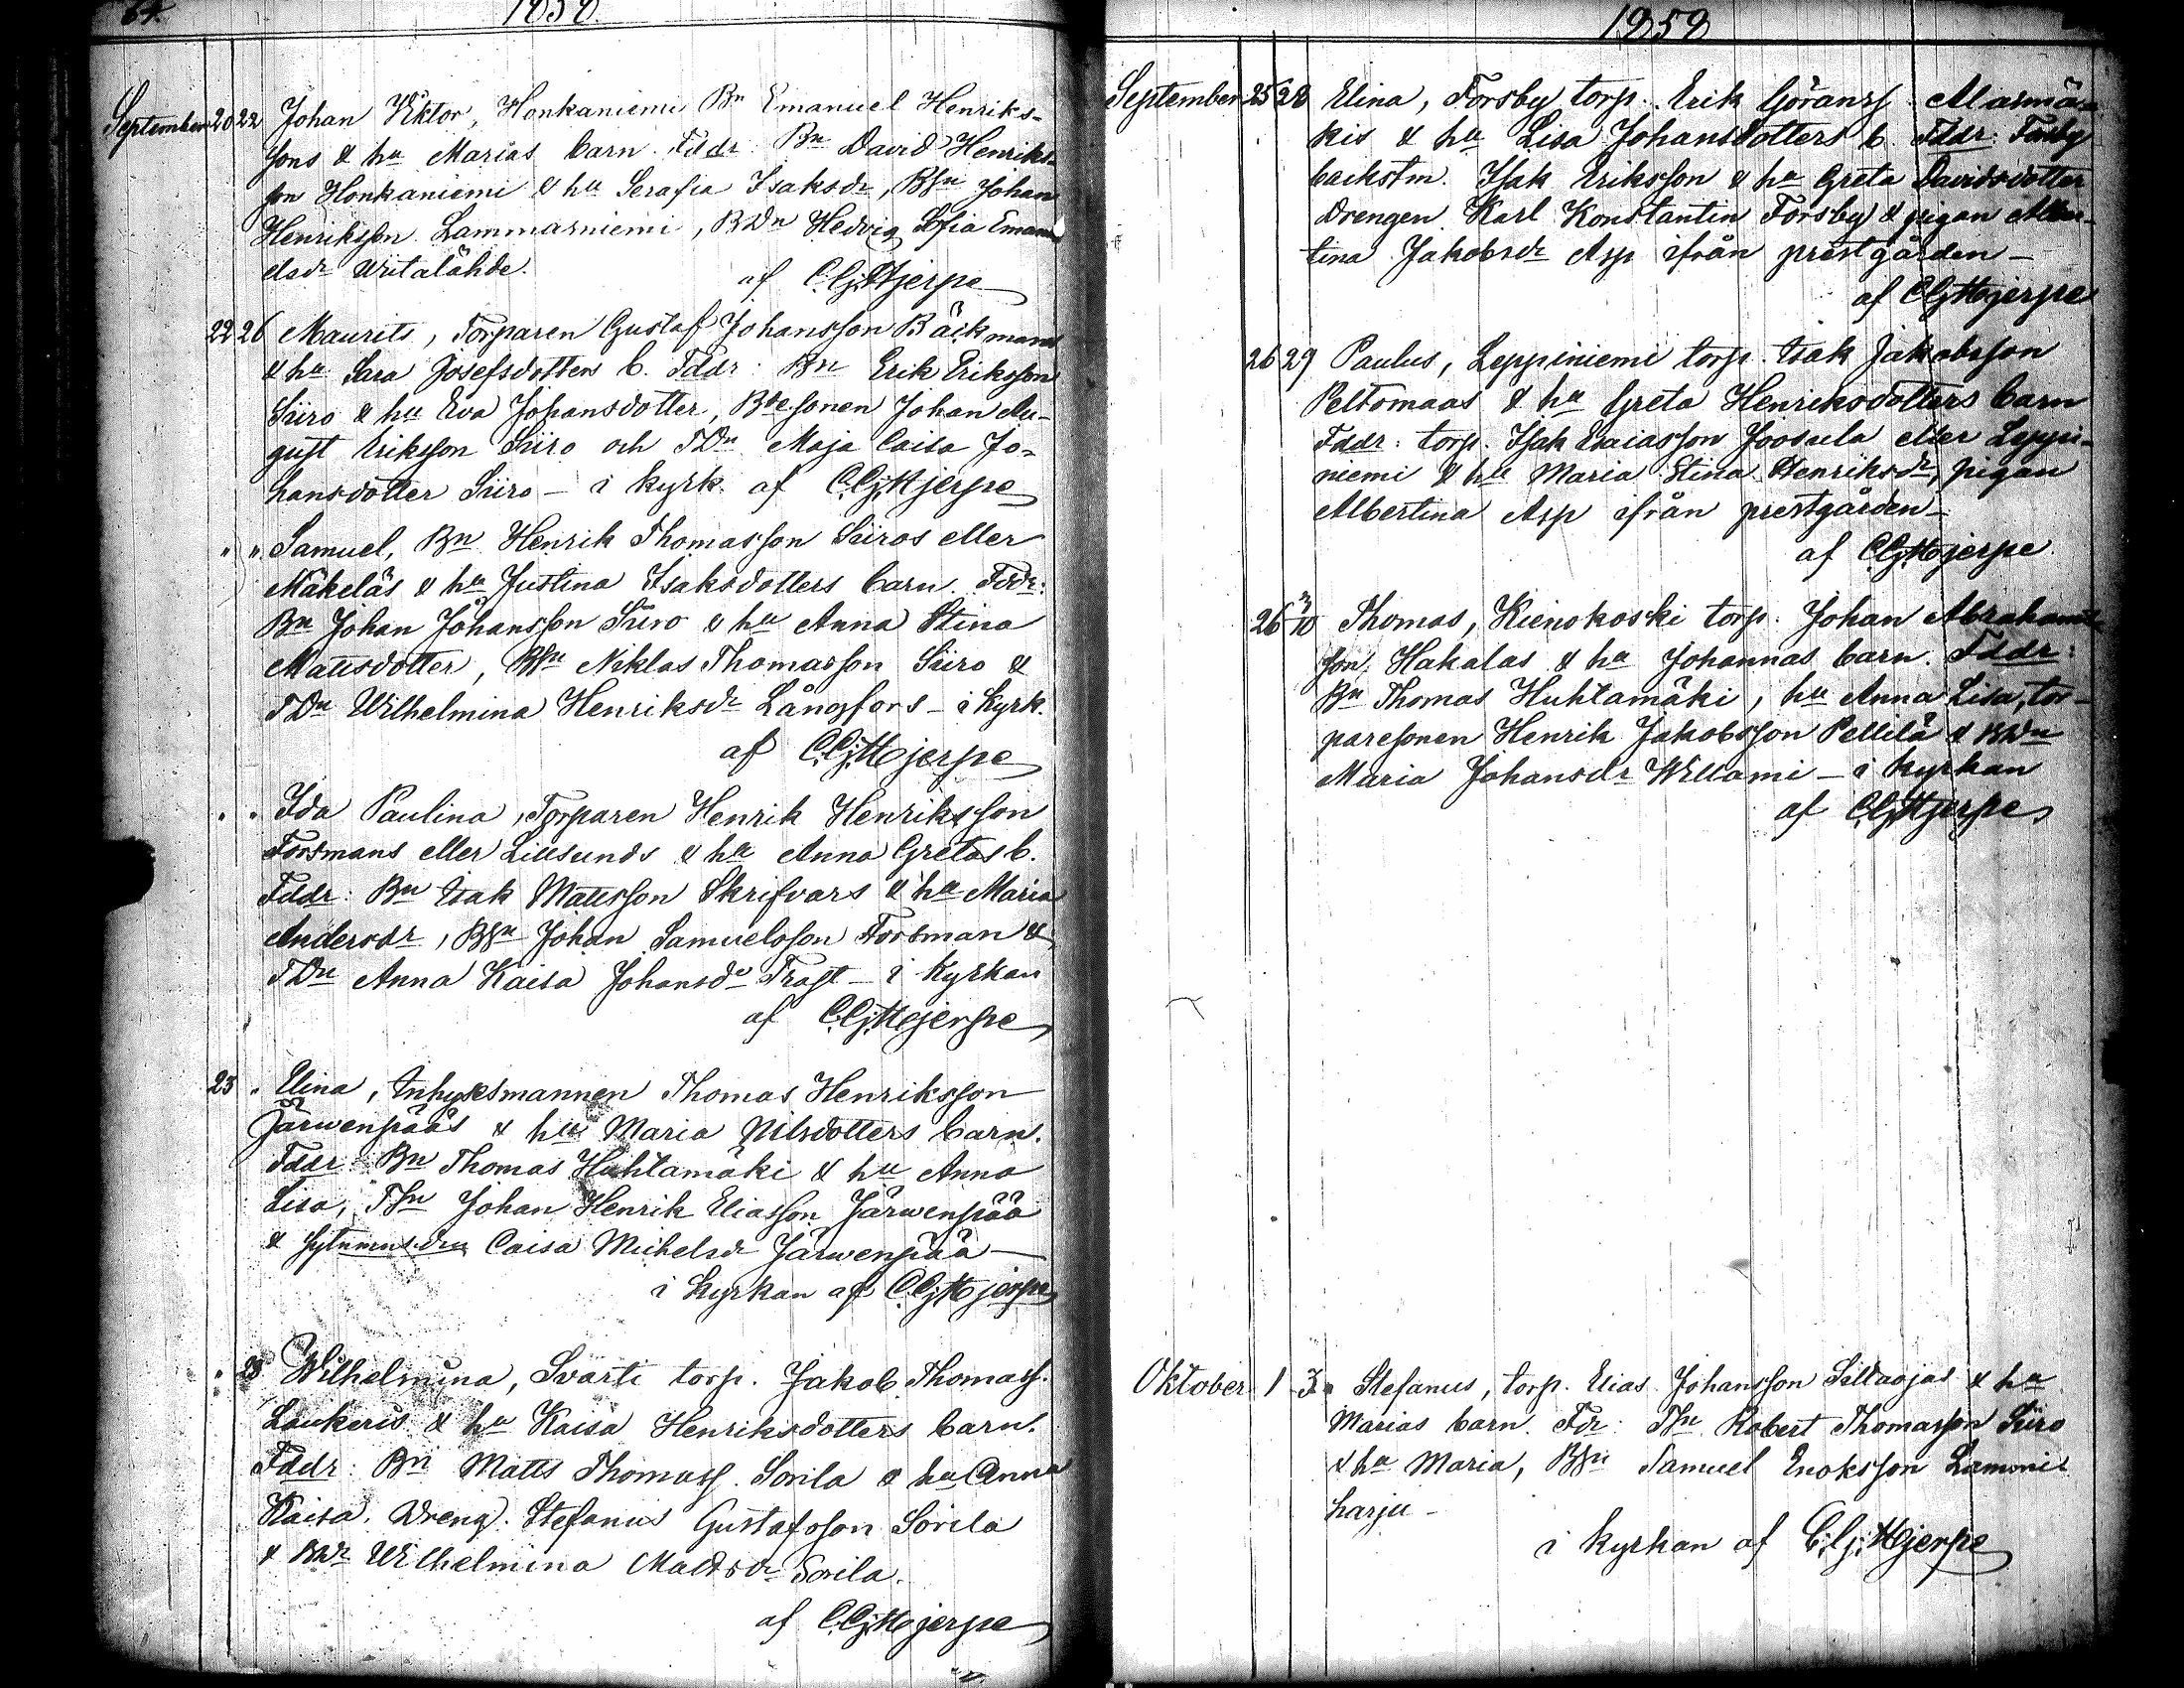 64.
1858
September 20 22 Johan Viktor, Honkaniemi Bn Emanuel Henriks-
sons & hu Marias barn. Fddr: Bn David Henriks-
son Honkaniemi & hu Serafia Isaksdr, BSn Johan
Henriksson Lammasniemi, BDn Hedvig Sofia Emanu-
elsdr Wiitalähde.
af C.G.Hjerpe
22 26 Maurits, Torparen Gustaf Johansson Bäckmans
& hu Sara Josefsdotters b. Fddr: Bn Erik Eriksson
Siiro & hu Eva Johansdotter, Bdesonen Johan Au-
gust Eriksson Siiro och TDn Maja Caisa Jo-
hansdotter Siiro – i kyrk. af C.G.Hjerpe
" " Samuel, Bn Henrik Thomasson Siiros eller
Mäkeläs & hu Justina Isaksdotters barn. Fddr:
Bn Johan Johansson Siiro & hu Anna Stina
Mattsdotter, BSn Niklas Thomasson Siiro &
TDn Wilhelmina Henriksdr Långfors – i kyrk.
af C.G.Hjerpe
" " Ida Paulina, Torparen Henrik Henriksson
Forsmans eller Lillsunds & hu Anna Gretas b.
Fddr: Bn Isak Mattsson Skrifvars & hu Maria
Andersdr, BSn Johan Samuelsson Forsman &
TDn Anna Kaisa Johansdr Trast – i kyrkan
af C.G.Hjerpe
23 " Elina, Inhysesmannen Thomas Henriksson
Järwenpääs & hu Maria Nilsdotters barn.
Fddr: Bn Thomas Huhtamäki & hu Anna
Lisa, TSn Johan Henrik Eliasson Järwenpää
& Caisa Michelsdr Järwenpää –
i kyrkan af C.G.Hjerpe
" 28 Wilhelmina, Svarti torp. Jakob Thomass.
Laukeris & hu Kaisa Henriksdotters barn.
Fddr: Bn Matts Thomass. Sorila & hu Anna
Kaisa. Dreng. Stefanus Gustafsson Sorila
& BDr Wilhelmina Mattsdr Sorila.
af C.G.Hjerpe
1858
September 25 28 Elina, Forsby torp. Erik Göranss. Alasmä-
kis & hu Lisa Johansdotters b. Fddr: Forsby
backstm. Isak Eriksson & hu Greta Davidsdotter
Drengen Karl Konstantin Forsby & pigan Alber-
tina Jakobsdr Asp ifrån prestgården –
af C.G.Hjerpe
26 29 Paulus, Leppiniemi torp. Isak Jakobsson
Peltomaas & hu Greta Henriksdotters barn
Fddr: torp. Isak Esaiasson Joosula eller Leppi-
niemi & hu Maria Stina Henriksdr, pigan
Albertina Asp ifrån prestgården –
af C.G.Hjerpe
26 3/10 Thomas, Kienokoski torp. Johan Abrahams-
son Hakalas & hu Johannas barn. Fddr:
Bn Thomas Huhtamäki, hu Anna Lisa, tor-
paresonen Henrik Jakobsson Pellilä & BDn
Maria Johansdr Willami – i kyrkan
af C.G.Hjerpe
Oktober 1 3 Stefanus, torp. Elias Johansson Siltaojas & hu
Marias barn. Fdr: TSn Robert Thomasson Siiro
& hu Maria, BSn Samuel Enoksson Lamminharju
harju –
i kyrkan af C.G.Hjerpe